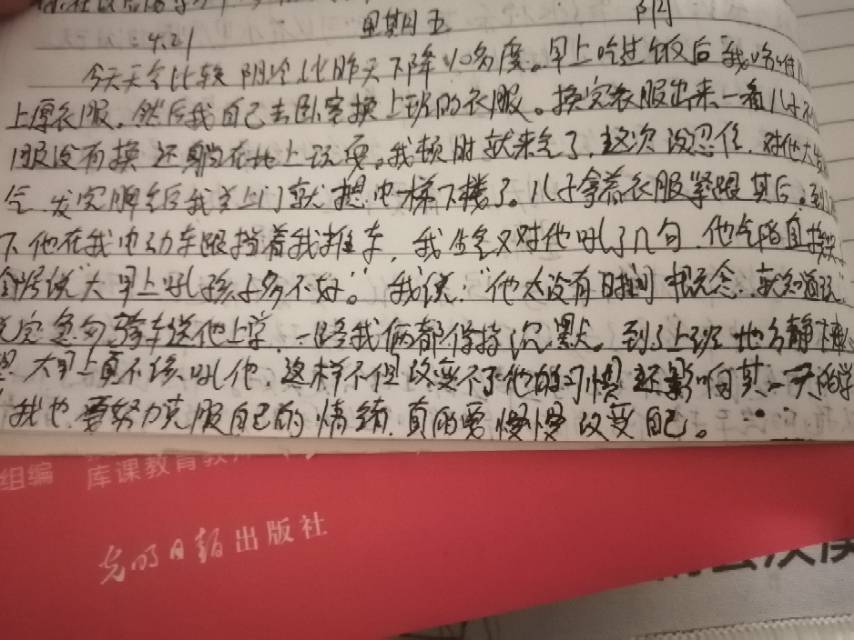 4.21 星期五 阴
今天天气比较阴冷比昨天下降10多度。早上吃过饭后我
上厚衣服,然后我自己去卧室换上班的衣服。换完衣服出来一看儿子
服没有换还躺在地上玩耍。我顿时就来气了,这次没忍住,对他大发
完脾气后我关上门就想电梯下楼了。儿子拿着衣服紧跟其后。到
下他在我电动车跟挡着我推车,我生气又对他吼了几句,他
说“大早上吼孩子多不好。”我说:“他太没有时间观念,
完急匆骑车送他上学,一路我俩都保持沉默。到了上班地方静
大早上真不该吼他,这样不但改变不了他的习惯还影响其一天的学
我也要努力克服自己的情绪,真的要慢慢改变自己。
组编 库课教育
光明日报出版社